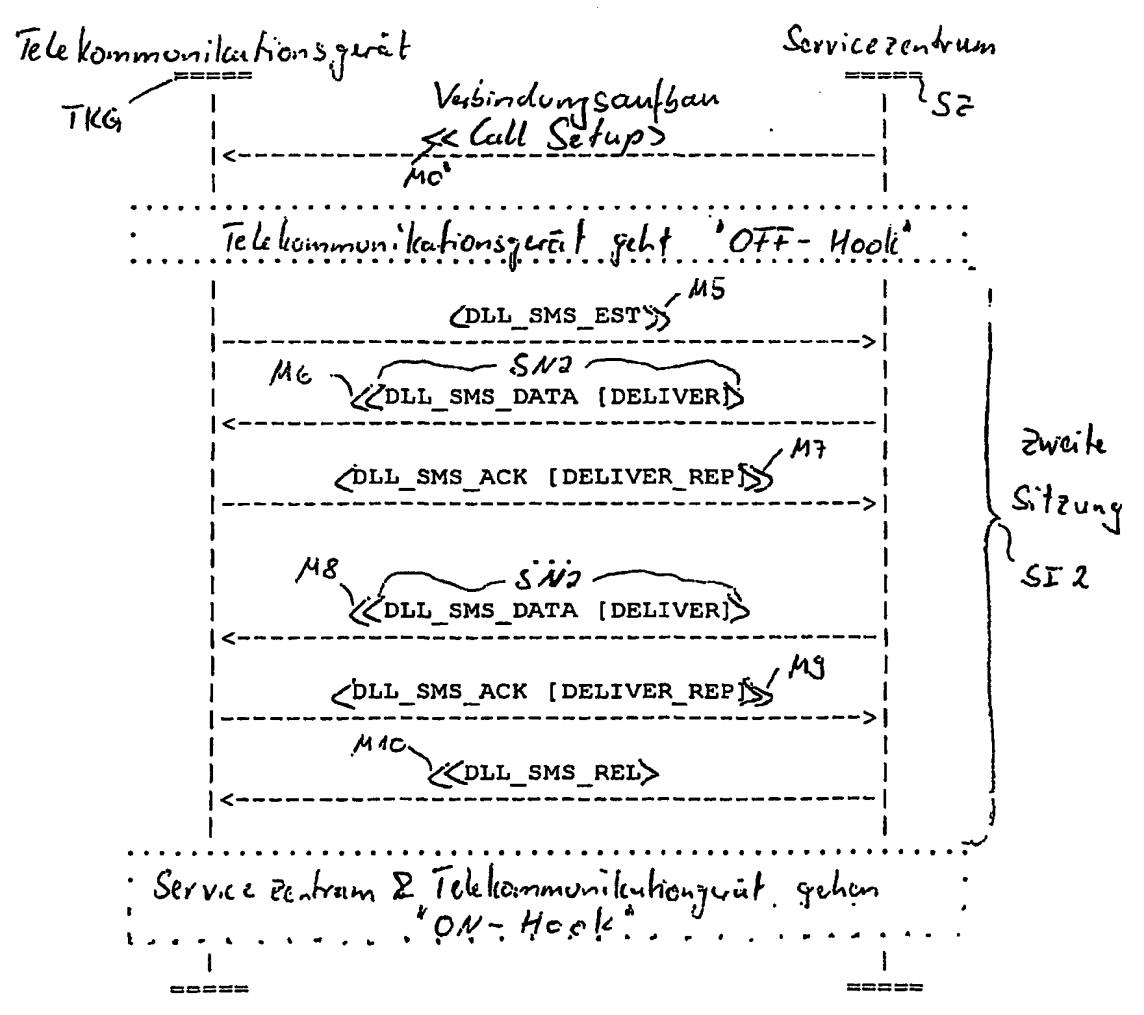 Telekommunikationsgerät
Servicezentrum
TKG
SZ
Verbindungsaufbau
<< Call Setup>
M0*
Telekommunikationsgerät geht "OFF-Hook"
<DLL_SMS_EST>> M5
M6 SN2
<<DLL_SMS_DATA [DELIVER]>
<DLL_SMS_ACK [DELIVER_REP]>> M7
M8 SN2
<<DLL_SMS_DATA [DELIVER]>
<DLL_SMS_ACK [DELIVER_REP]>> M9
M10
<<DLL_SMS_REL>
Zweite
Sitzung
SI 2
Service Zentrum & Telekommunikationgerät gehen
"ON-Hook"